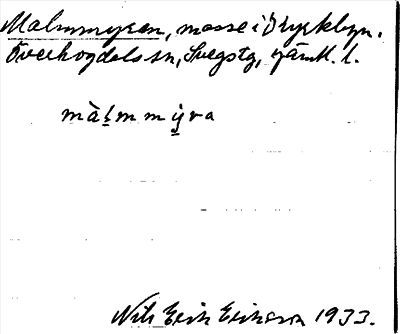 Malmmyren, mosse i Dryckbyn.
Överhogdals sn, Svegs tg, Jämtl. l.
màḷmmỵra
Nils Erik Erikson 1933.